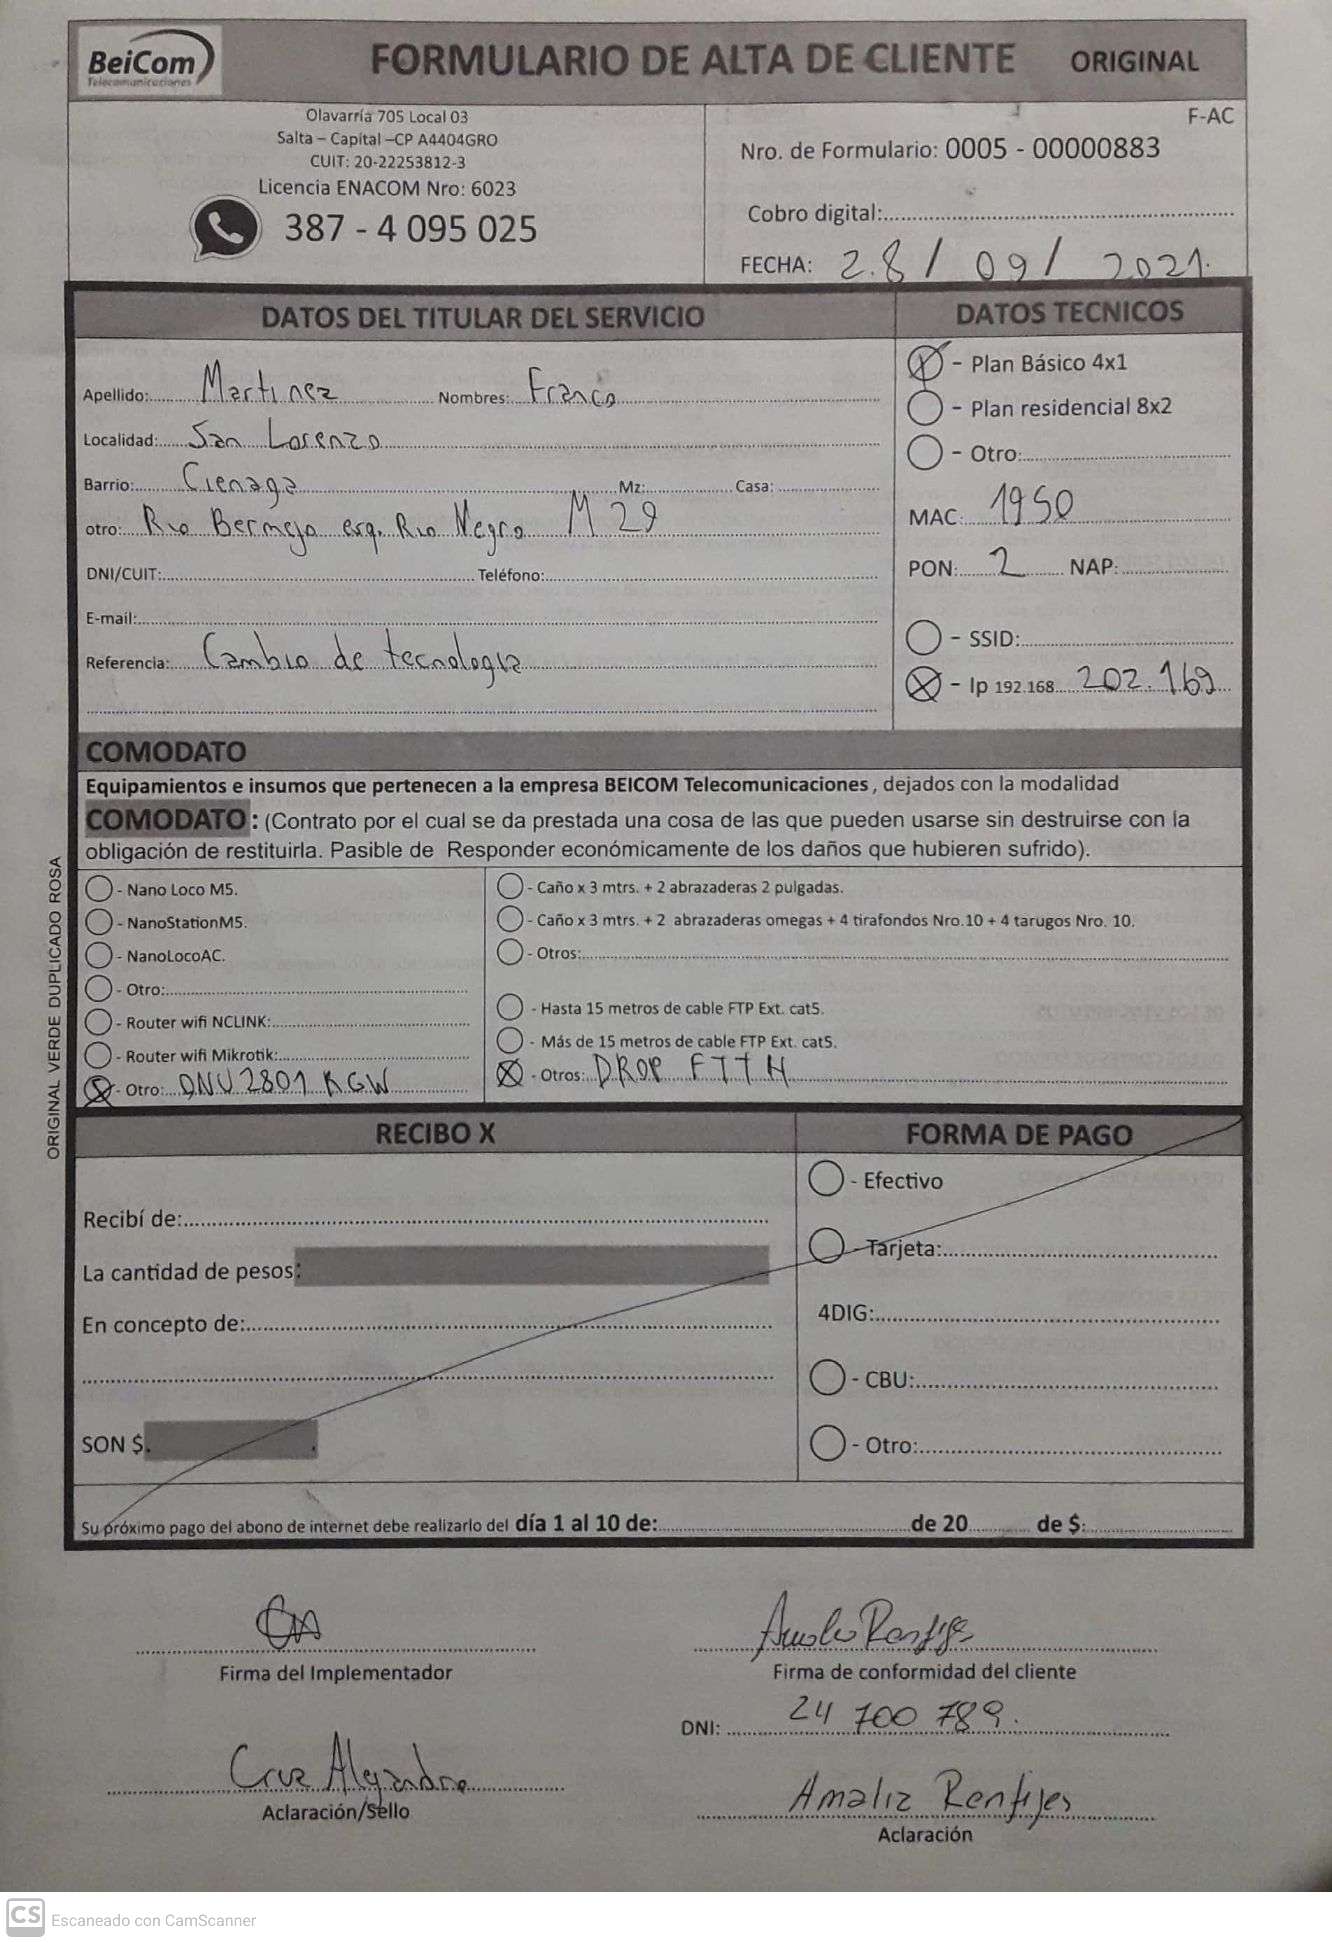 BeiCom
Telecomunicaciones
FORMULARIO DE ALTA DE CLIENTE ORIGINAL
Olavarría 705 Local 03
Salta – Capital –CP A4404GRO
CUIT: 20-22253812-3
Licencia ENACOM Nro: 6023
387 - 4 095 025
F-AC
Nro. de Formulario: 0005 - 00000883
Cobro digital:
FECHA: 28/09/2021
DATOS DEL TITULAR DEL SERVICIO
Apellido: Martinez Nombres: Franco
Localidad: San Lorenzo
Barrio: Cienaga Mz: Casa:
otro: Rio Bermejo esq. Rio Negro M 29
DNI/CUIT: Teléfono:
E-mail:
Referencia: Cambio de tecnologia
DATOS TECNICOS
- Plan Básico 4x1
- Plan residencial 8x2
- Otro:
MAC: 1950
PON: 2 NAP:
- SSID:
- Ip 192.168. 202.169
COMODATO
Equipamientos e insumos que pertenecen a la empresa BEICOM Telecomunicaciones, dejados con la modalidad
COMODATO: (Contrato por el cual se da prestada una cosa de las que pueden usarse sin destruirse con la
obligación de restituirla. Pasible de Responder económicamente de los daños que hubieren sufrido).
- Nano Loco M5.
- NanoStationM5.
- NanoLocoAC.
- Otro:
- Router wifi NCLINK:
- Router wifi Mikrotik:
- Otro: ONU 2801 RGW
- Caño x 3 mtrs. + 2 abrazaderas 2 pulgadas.
- Caño x 3 mtrs. + 2 abrazaderas omegas + 4 tirafondos Nro.10 + 4 tarugos Nro. 10.
- Otros:
- Hasta 15 metros de cable FTP Ext. cat5.
- Más de 15 metros de cable FTP Ext. cat5.
- Otros: DROP FTTH
ORIGINAL VERDE DUPLICADO ROSA
RECIBO X
Recibí de:
La cantidad de pesos:
En concepto de:
SON $.
FORMA DE PAGO
- Efectivo
- Tarjeta:
4DIG:
- CBU:
- Otro:
Su próximo pago del abono de internet debe realizarlo del día 1 al 10 de: de 20 de $:
Firma del Implementador
Cruz Alejandro
Aclaración/Sello
Amalia Renfijes
Firma de conformidad del cliente
DNI: 24 700 789.
Amalia Renfijes
Aclaración
CS Escaneado con CamScanner